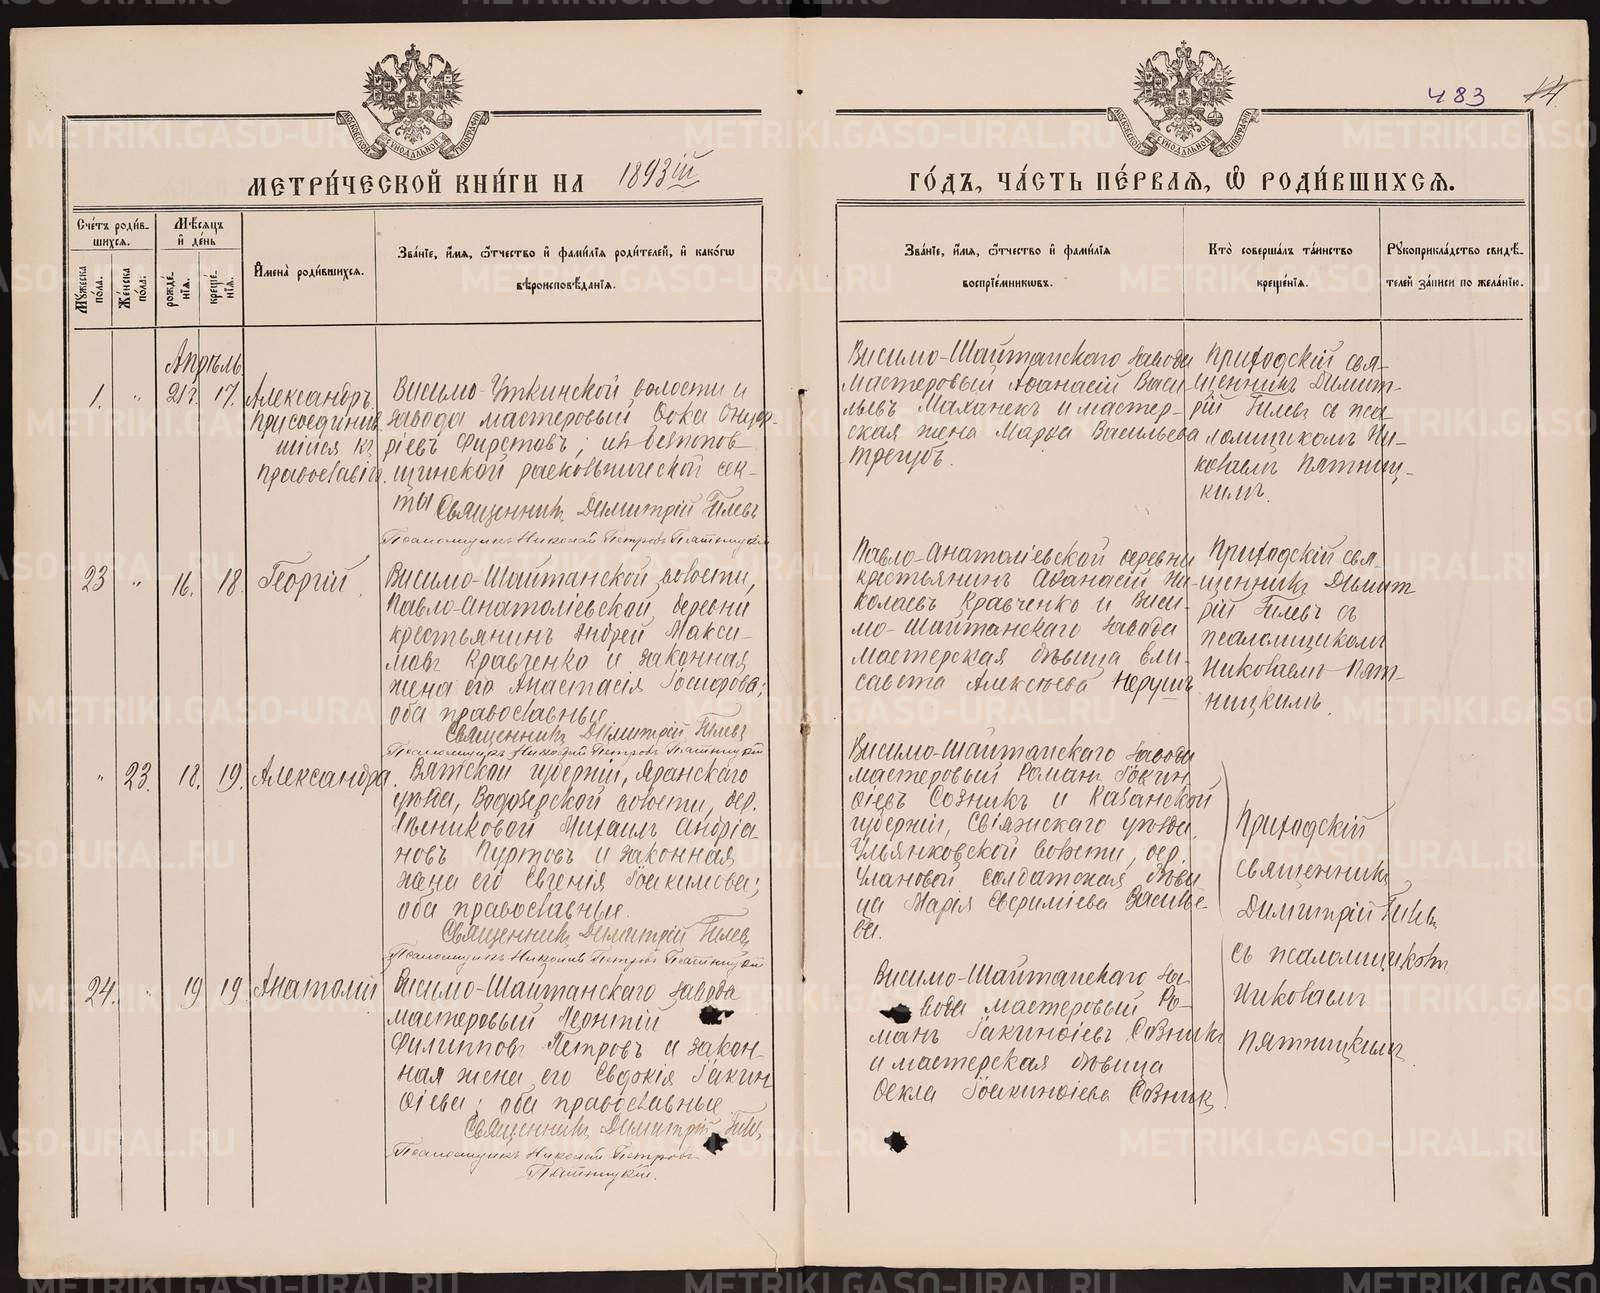 483 14
МЕТРИ́ЧЕСКОЙ КНИ́ГИ НА 1893ій
ГО́ДЪ, ЧА́СТЬ ПЕ́РВАЯ, Ѡ РОДИ́ВШИХСЯ.
Сче́тъ роди́в-
шихся.
Мѣ́сяцъ
и҆ де́нь
Мꙋ́жеска
по́ла.
Же́нска
по́ла.
рожде́-
нія.
креще́-
нія.
И҆мена̀ роди́вшихся.
Зва́ніе, и҆́мя, ѻ҆́тчество и҆ фами́лія роди́телей, и҆ како́гѡ
вѣроисповѣ́данія.
Зва́ніе, и҆́мя, ѻ҆́тчество и҆ фами́лія
воспріе́мникѡвъ.
Кто̀ соверша́лъ та́инство
креще́нія.
Рꙋкоприкла́дство свидѣ́-
телей за́писи по жела́нію.
Апрѣль
1. „ 17.
Александръ
присоединив-
шійся къ
православію.
Висимо-Уткинской волости и
завода мастеровый Ѳока Онуф-
ріевъ Фирстовъ; изъ безпопов-
щинской раскольнической сек-
ты
Священникъ Димитрій Гилевъ
Псаломщикъ Николай Петровъ Пятницкій
Висимо-Шайтанскаго завода
мастеровый Аѳанасій Васи-
льевъ Маханекъ и мастер-
ская жена Марѳа Васильева
Трегубъ.
Приходскій свя-
щенникъ Димит-
рій Гилевъ съ пса-
ломщикомъ Ни-
колаемъ Пятниц-
кимъ.
23 „ 16. 18.
Георгій.
Висимо-Шайтанской волости,
Павло-Анатоліевской деревни
крестьянинъ Андрей Макси-
мовъ Кравченко и законная
жена его Анастасія Ѳедорова;
оба православные
Священникъ Димитрій Гилевъ
Псаломщикъ Николай Петровъ Пятницкій
Павло-Анатоліевской деревни
крестьянинъ Аѳанасій Ни-
колаевъ Кравченко и Виси-
мо-Шайтанскаго завода
мастерская дѣвица Ели-
савета Алексѣева Нерушъ
Приходскій свя-
щенникъ Димит-
рій Гилевъ съ
псаломщикомъ
Николаемъ Пят-
ницкимъ.
„ 23. 18. 19.
Александра.
Вятской губерніи, Яранскаго
уѣзда, Водозерской волости, дер.
Михаилъ Андріа-
новъ Пуртовъ и законная
жена его Евгенія Іоакимова;
оба православные.
Священникъ Димитрій Гилевъ
Псаломщикъ Николай Петровъ Пятницкій
Висимо-Шайтанскаго завода
мастеровый Романъ Іакин-
ѳіевъ Созникъ и Казанской
губерніи, Свіяжскаго уѣзда,
Ульянковской волости, дер.
Улановой солдатская дѣви-
ца Марія Евѳиміева Василье-
ва.
Приходскій
священникъ
Димитрій Гилевъ
съ псаломщикомъ
Николаемъ
Пятницкимъ.
24. „ 19 19
Анатолій
Висимо-Шайтанскаго завода
мастеровый Леонтій
Филипповъ Петровъ и закон-
ная жена его Евдокія Іакин-
ѳіева; оба православные
Священникъ Димитрій Гилевъ
Псаломщикъ Николай Петровъ
Пятницкій.
Висимо-Шайтанскаго за-
вода мастеровый Ро-
манъ Іакинѳіевъ Созникъ
и мастерская дѣвица
Ѳекла Іоакинѳіева Созникъ
METRIKI.GASO-URAL.RU